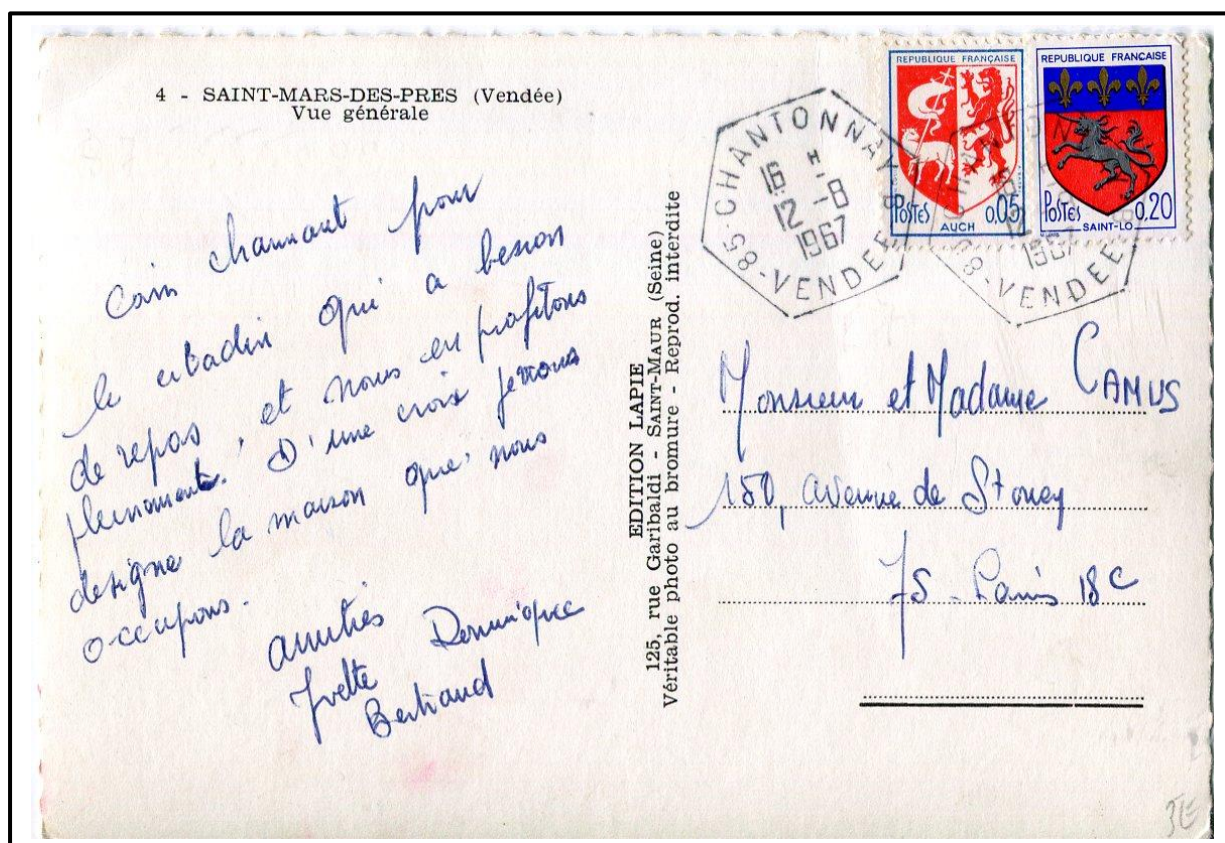 4 - SAINT-MARS-DES-PRES (Vendée)
Vue générale
Coin charmant pour
le citadin qui a besoin
de repos, et nous en profitons
pleinement. D'une croix ferrons
designe la maison que nous
occupons.
amitiés
Yvette Dominique
Bertrand
EDITION LAPIE
125, rue Garibaldi - SAINT-MAUR (Seine)
Véritable photo au bromure - Reprod. interdite
CHANTONNAY
16 H
12 -8
1967
85 - VENDEE
REPUBLIQUE FRANÇAISE
POSTES 0,05
AUCH
REPUBLIQUE FRANÇAISE
POSTES 0,20
SAINT-LO
1967
VENDEE
Monsieur et Madame CAMUS
150, avenue de St ouen
75 - Paris 18e
3E